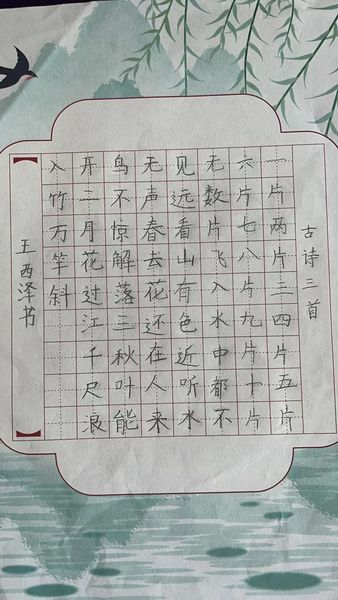 古诗三首
一片两片三四片五片
六片七八片九片十片
无数片飞入水中都不
见远看山有色近听水
无声春去花还在人来
鸟不惊解落三秋叶能
开二月花过江千尺浪
入竹万竿斜
王西泽书